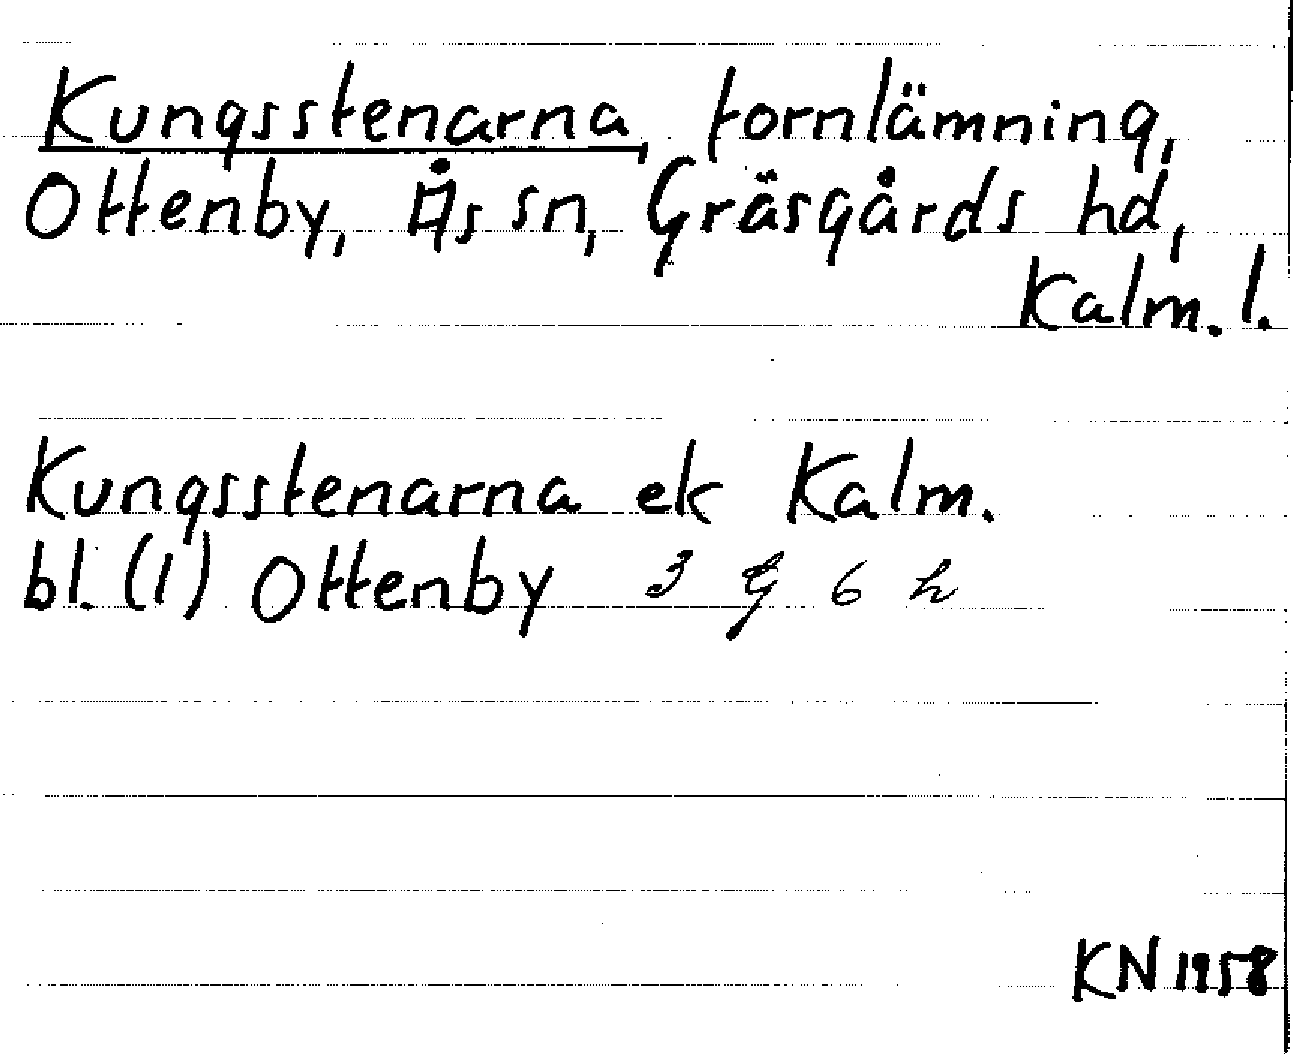 Kungsstenarna, fornlämning,
Ottenby, Ås sn, Gräsgårds hd,
Kalm. l.
Kungsstenarna ek Kalm.
bl. (1) Ottenby 3 G 6 h
KN 1958